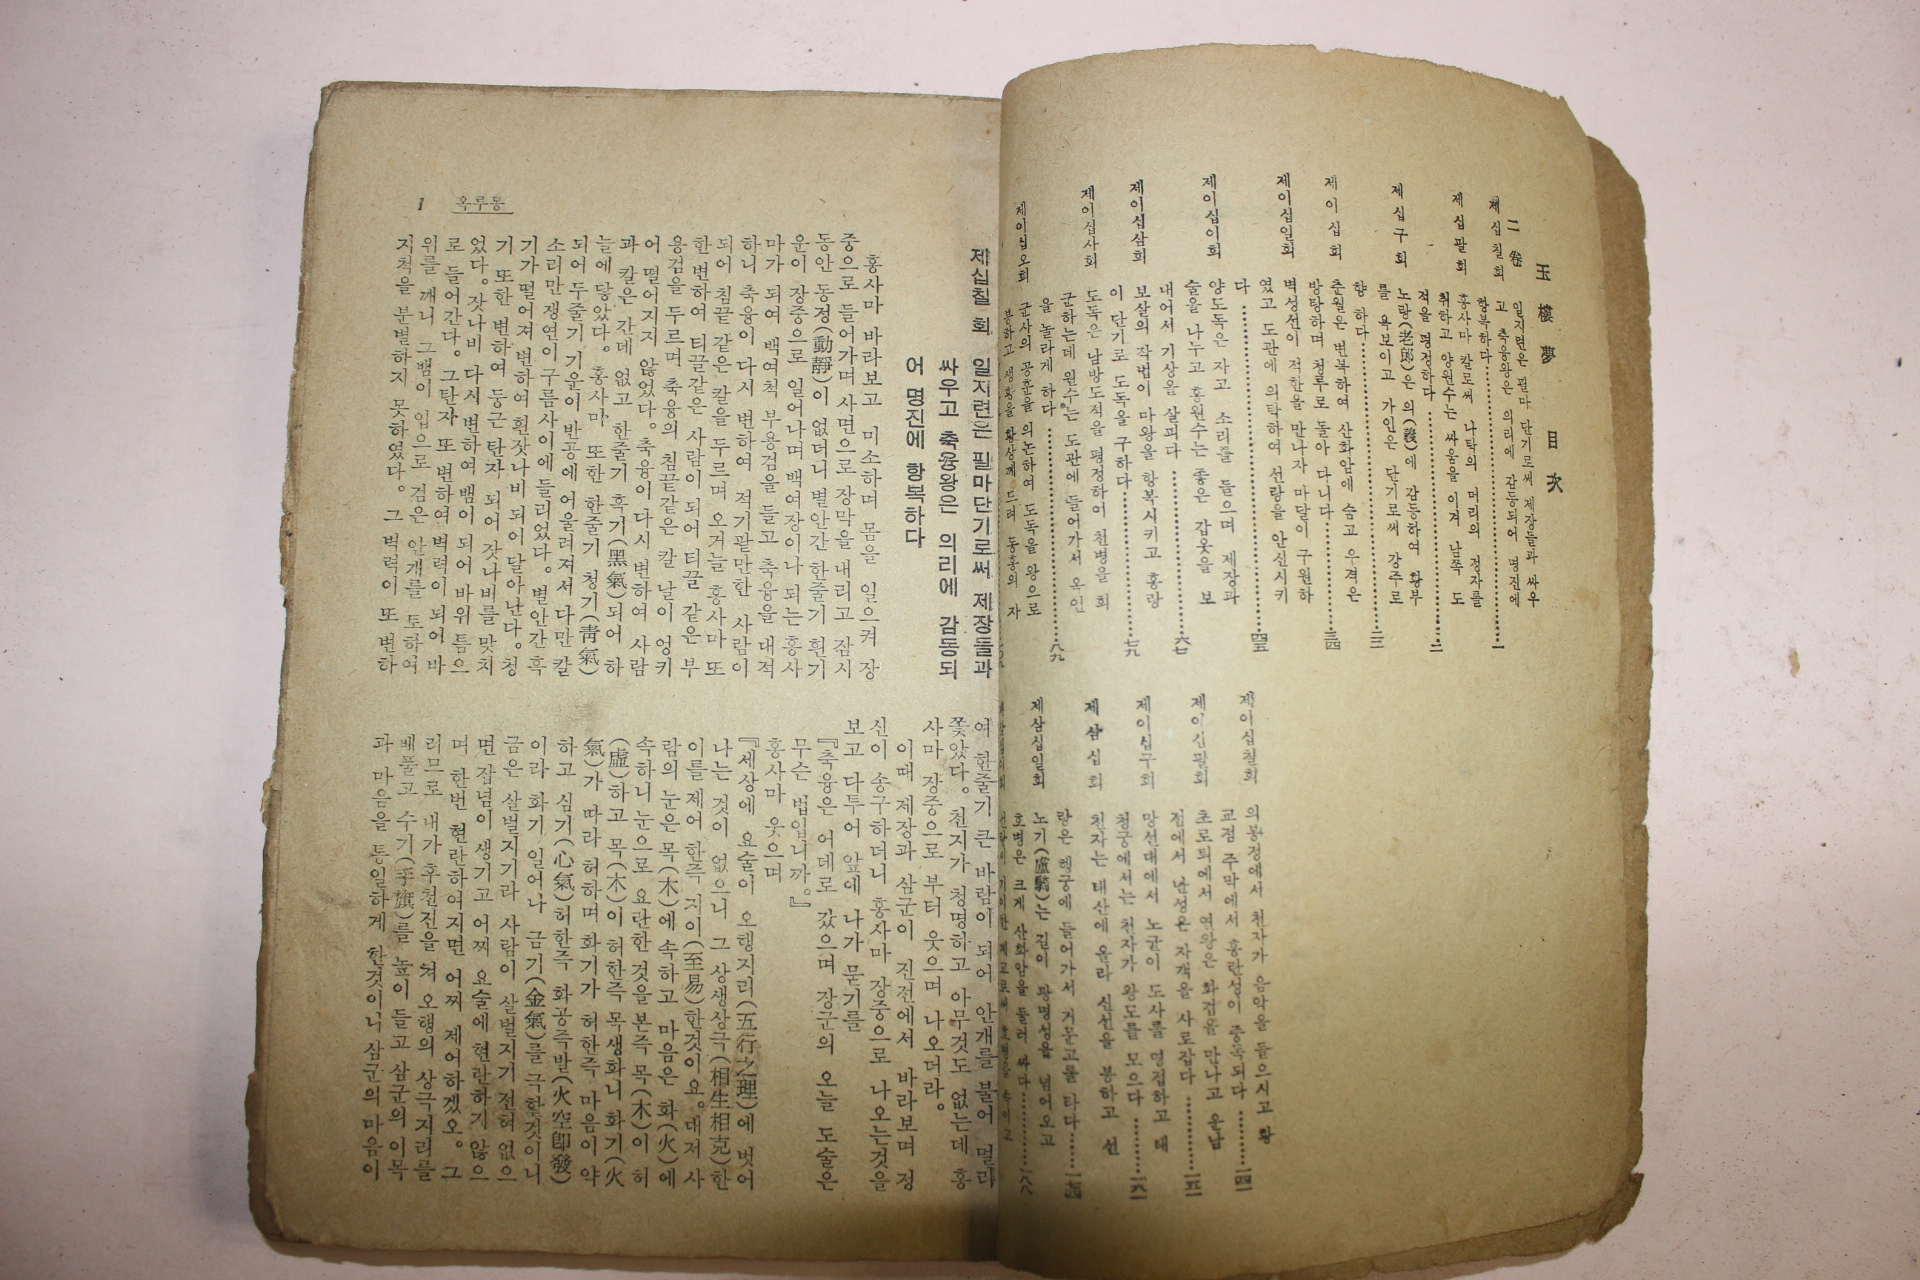 玉樓夢 目次
二卷
제십칠회
일지련은 필마 단기로써 제장들과 싸우
고 축융왕은 의리에 감동되어 명진에
항복하다……一
제십팔회
홍사마 칼로써 나탁의 머리의 정자를
취하고 양원수는 싸움을 이겨 남쪽 도
적을 평정하다……
제십구회
노랑(老郎)은 의(義)에 감동하여 황부
를 욕보이고 가인은 단기로써 강주로
향 하다……
제이십회
춘월은 변복하여 산화암에 숨고 우격은
방탕하며 청루로 돌아 다니다……
제이십일회
벽성선이 적한을 만나자 마달이 구원하
였고 도관에 의탁하여 선랑을 안신시키
다……
제이십이회
양도독은 자고 소리를 들으며 제장과
술을 나누고 홍원수는 좋은 갑옷을 보
내어서 기상을 살피다……六七
제이십삼회
보살의 작법이 마왕을 항복시키고 홍랑
이 단기로 도독을 구하다……七九
제이십사회
도독은 남방도적을 평정하여 천병을 회
군하는데 원수는 도관에 들어가서 옥인
을 놀라게 하다……八九
제이십오회
군사의 공훈을 의논하여 도독을 왕으로
봉하고 생황을 황상께 드려 동홍의 자
제이십칠회
의봉정에서 천자가 음악을 들으시고 황
교점 주막에서 홍란성이 중독되다……一四一
제이십팔회
초료퇴에서 연왕은 화검을 만나고 운남
점에서 난성은 자객을 사로잡다……一五一
제이십구회
망선대에서 노균이 도사를 영접하고 태
청궁에서는 천자가 왕모를 모으다……一六一
제삼십회
천자는 태산에 올라 신선을 봉하고 선
랑은 행궁에 들어가서 거문고를 타다……一七四
제삼십일회
노기(虜騎)는 길이 광명성을 넘어오고
호병은 크게 산화암을 둘러 싸다……一八八
1 옥루몽
제십칠회 일지련은 필마단기로써 제장들과
싸우고 축융왕은 의리에 감동되
어 명진에 항복하다
홍사마 바라보고 미소하며 몸을 일으켜 장
중으로 들어가며 사면으로 장막을 내리고 잠시
동안 동정(動靜)이 없더니 별안간 한줄기 흰기
운이 장중으로 일어나며 백여장이나 되는 홍사
마가 되여 백여척 부용검을 들고 축융을 대적
하니 축융이 다시 변하여 적기괄만한 사람이
되어 침끝 같은 칼을 두르며 오거늘 홍사마 또
한 변하여 티끌같은 사람이 되어 티끌 같은 부
용검을 두르며 축융의 침끝같은 칼 날이 엉키
어 떨어지지 않었다. 축융이 다시 변하여 사람
과 칼은 간데 없고 한줄기 흑기(黑氣)되어 하
늘에 닿았다. 홍사마 또한 한줄기 청기(靑氣)
되어 두줄기 기운이 반공에 어울러져서 다만 칼
소리만 쟁연이 구름사이에 들리었다. 별안간 흑
기가 떨어져 변하여 흰잣나비 되어 달아난다. 청
기 또한 변하여 둥근 탄자 되어 잣나비를 맞치
었다. 잣나비 다시 변하여 뱀이 되어 바위 틈으
로 들어간다. 그탄자 또 변하여 벽력이 되어 바
위를 깨니 그뱀이 입으로 검은 안개를 토하여
지척을 분별하지 못하였다. 그 벽력이 또 변하
여 한줄기 큰 바람이 되어 안개를 불어 멀리
쫓았다. 천지가 청명하고 아무것도 없는데 홍
사마 장중으로 부터 웃으며 나오더라.
이때 제장과 삼군이 진전에서 바라보며 정
신이 송구하더니 홍사마 장중으로 나오는것을
보고 다투어 앞에 나가 묻기를
『축융은 어데로 갔으며 장군의 오늘 도술은
무슨 법입니까.』
홍사마 웃으며
『세상에 요술이 오행지리(五行之理)에 벗어
나는 것이 없으니 그 상생상극(相生相克)한
이를 제어 한즉 지이(至易)한것이요. 대저 사
람의 눈은 목(木)에 속하고 마음은 화(火)에
속하니 눈으로 요란한 것을 본즉 목(木)이 허
(虛)하고 목(木)이 허한즉 목생화니 화기(火
氣)가 따라 허하며 화기가 허한즉 마음이 약
하고 심기(心氣)허한즉 화공즉발(火空卽發)
이라 화기 일어나 금기(金氣)를 극한것이니
금은 살벌지기라 사람이 살벌지기 전혀 없으
면 잡념이 생기고 어찌 요술에 현란하기 않으
며 한번 현란하여지면 어찌 제어하겠오. 그
러므로 내가 후천진을 쳐 오행의 상극지리를
베풀고 수기(手旗)를 높이 들고 삼군의 이목
과 마음을 통일하게 한것이니 삼군의 마음이